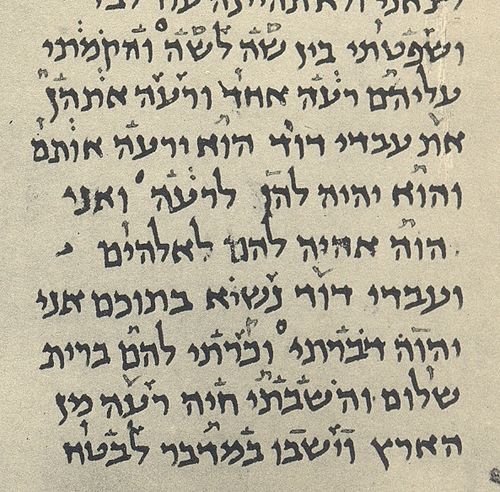 לצאני ולא תהיינה עוד לבז
ושפטתי בין שה לשה והקמתי
עליהם רעה אחד ורעה אתהן
את עבדי דויד הוא ירעה אותם
והוא יהיה להן לרעה ואני
יהוה אהיה להם לאלהים
ועבדי דוד נשיא בתוכם אני
יהוה דברתי וכרתי להם ברית
שלום והשבתי חיה רעה מן
הארץ וישבו במדבר לבטח